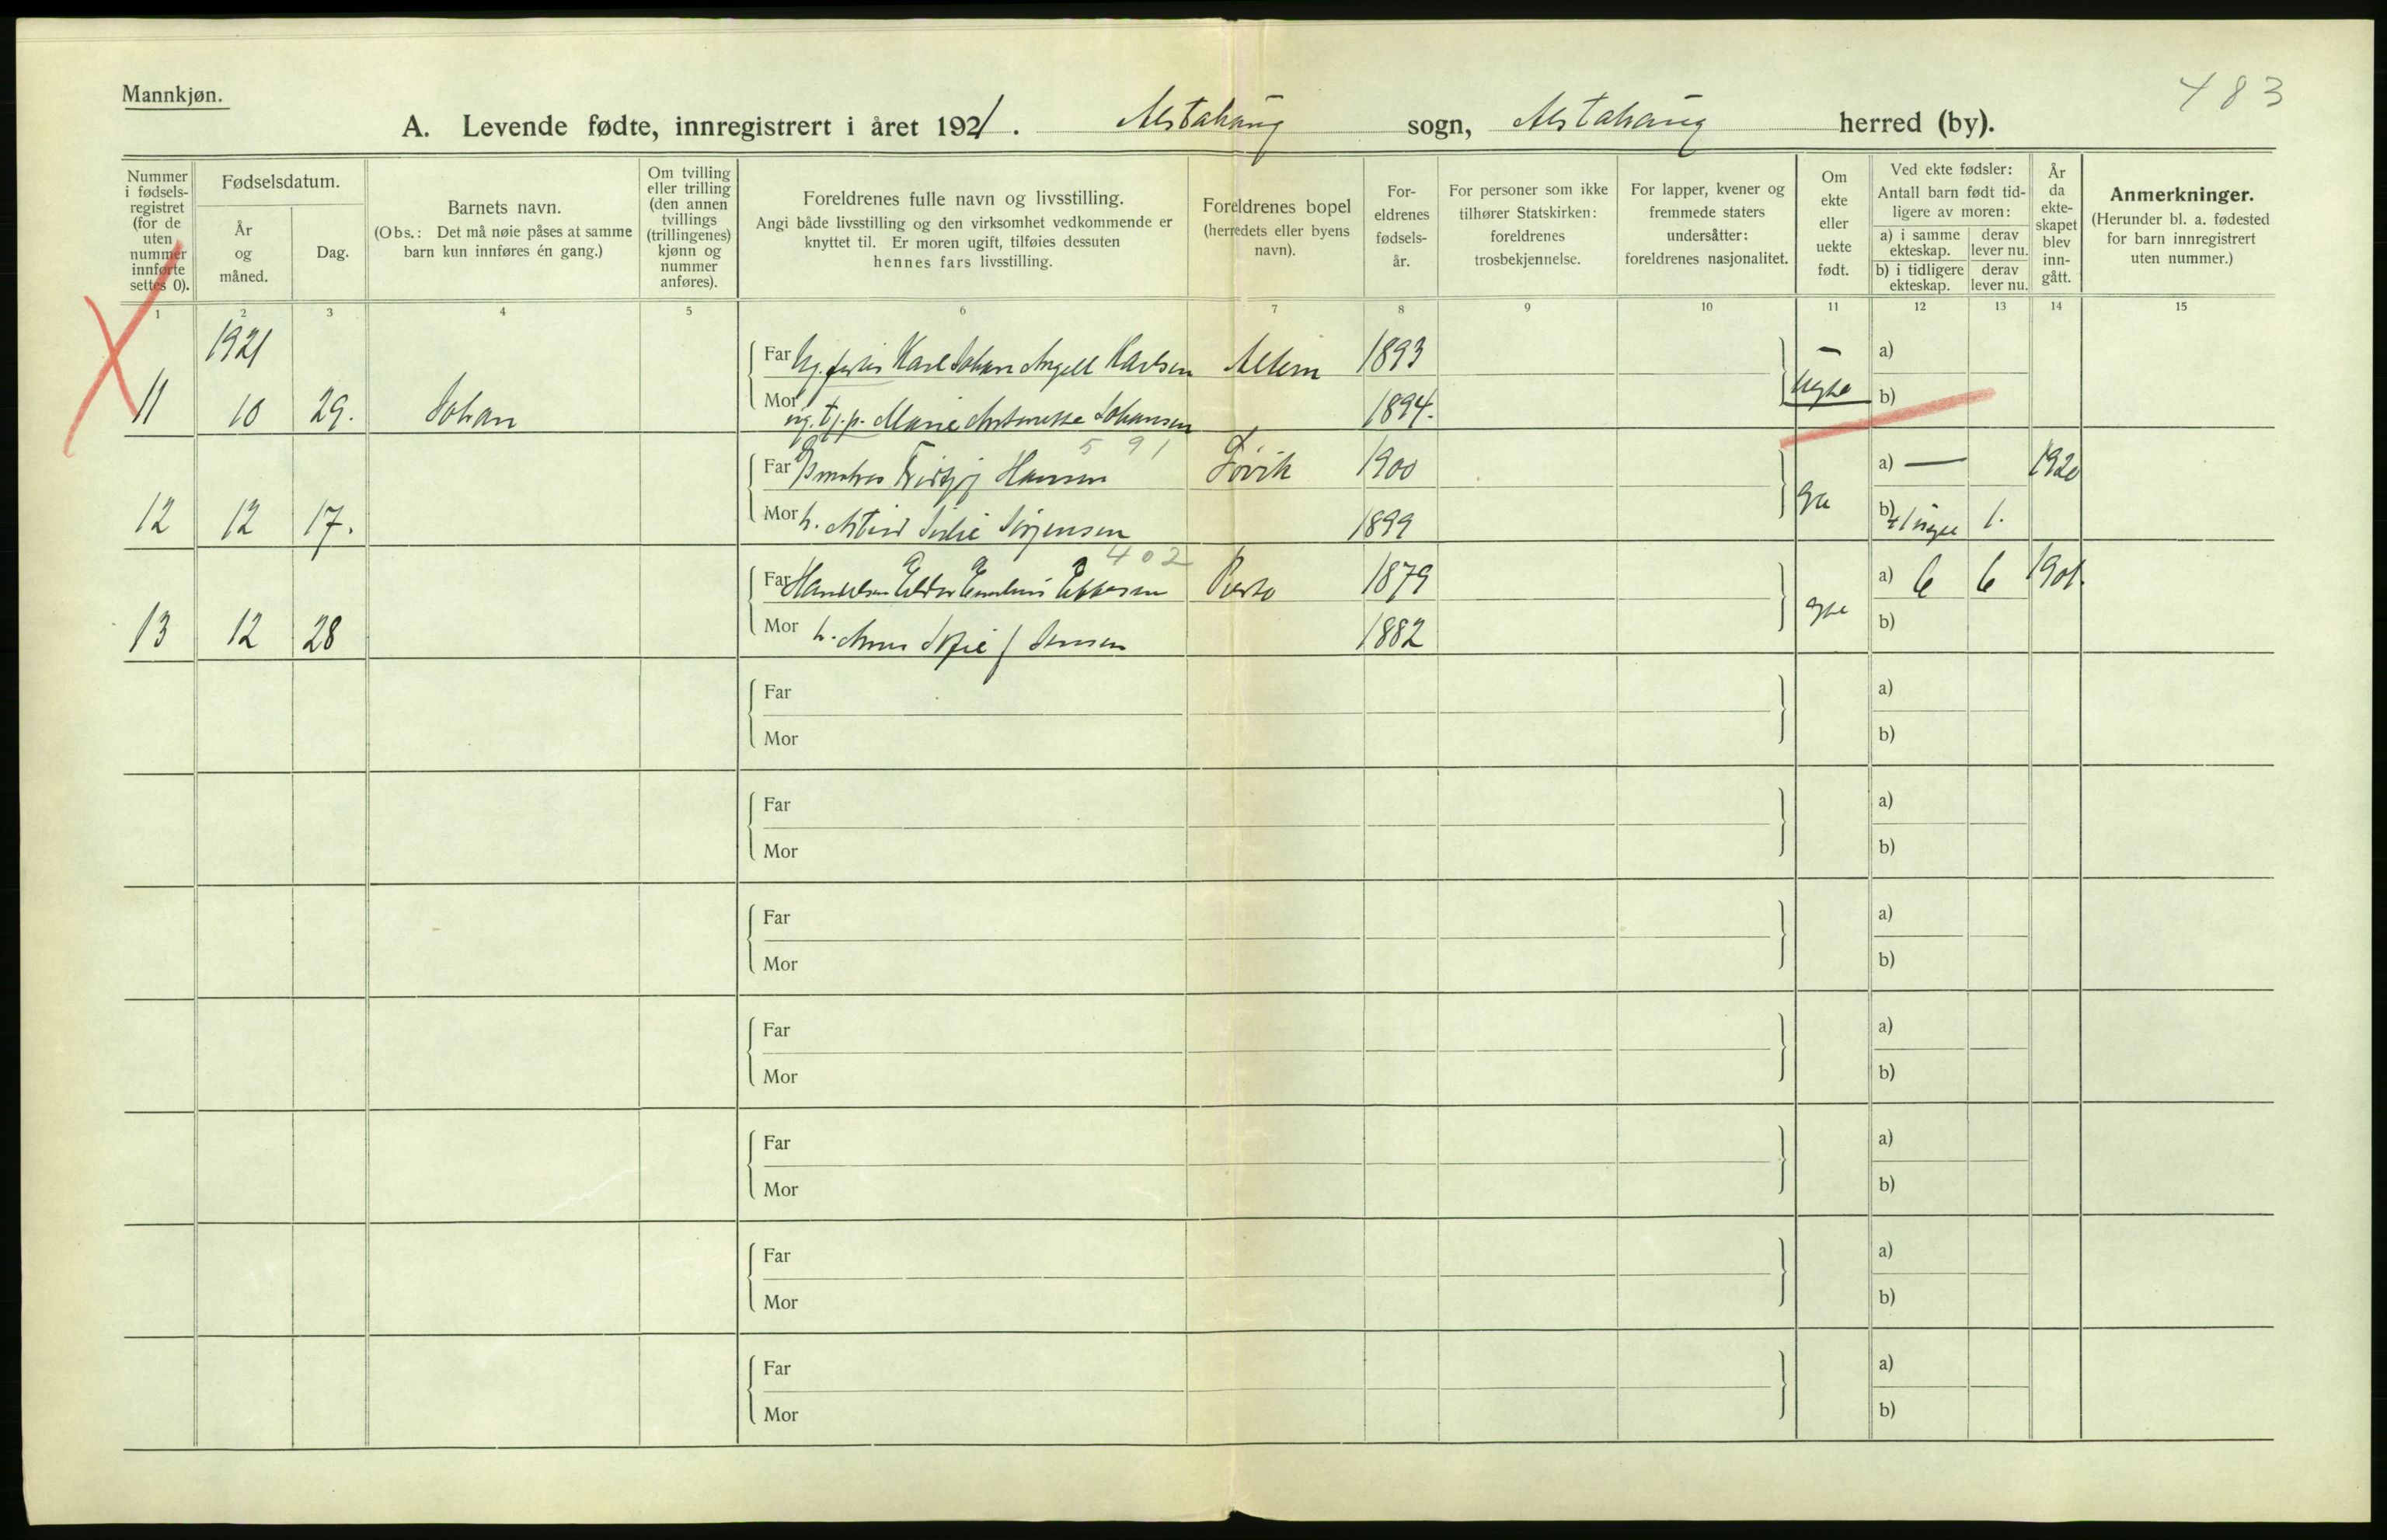 Mannkjøn.
483
A. Levende fødte, innregistrert i året 1921. Alstahaug sogn, Alstahaug herred (by).
Nummer i fødsels-registret (for de uten nummer innførte settes 0).
Fødselsdatum.
År og måned.
Dag.
Barnets navn.
(Obs.: Det må nøie påses at samme barn kun innføres én gang.)
Om tvilling eller trilling (den annen tvillings (trillingenes) kjønn og nummer anføres).
Foreldrenes fulle navn og livsstilling.
Angi både livsstilling og den virksomhet vedkommende er knyttet til. Er moren ugift, tilføies dessuten hennes fars livsstilling.
Foreldrenes bopel (herredets eller byens navn).
For-eldrenes fødsels-år.
For personer som ikke tilhører Statskirken: foreldrenes trosbekjennelse.
For lapper, kvener og fremmede staters undersåtter: foreldrenes nasjonalitet.
Om ekte eller uekte født.
Ved ekte fødsler:
Antall barn født tid-ligere av moren:
a) i samme ekteskap.
derav lever nu.
b) i tidligere ekteskap.
derav lever nu.
År da ekte-skapet blev inn-gått.
Anmerkninger.
(Herunder bl. a. fødested for barn innregistrert uten nummer.)
1 2 3 4 5 6 7 8 9 10 11 12 13 14 15
1921
Far Ug. Karl Johan Angell Karlsen 1893 a)
11 10 29. Johan Mor ug. tj.p. Marie Johansen 1894. b)
591
Far Hansen 1900 a) — 1920
12 12 17. Mor h. Jørgensen 1899 b) 1.
402
Far 1879 a) 6 6 1901.
13 12 28 Mor h. Anna Sofie f Jensen 1882 b)
Far a)
Mor b)
Far a)
Mor b)
Far a)
Mor b)
Far a)
Mor b)
Far a)
Mor b)
Far a)
Mor b)
Far a)
Mor b)